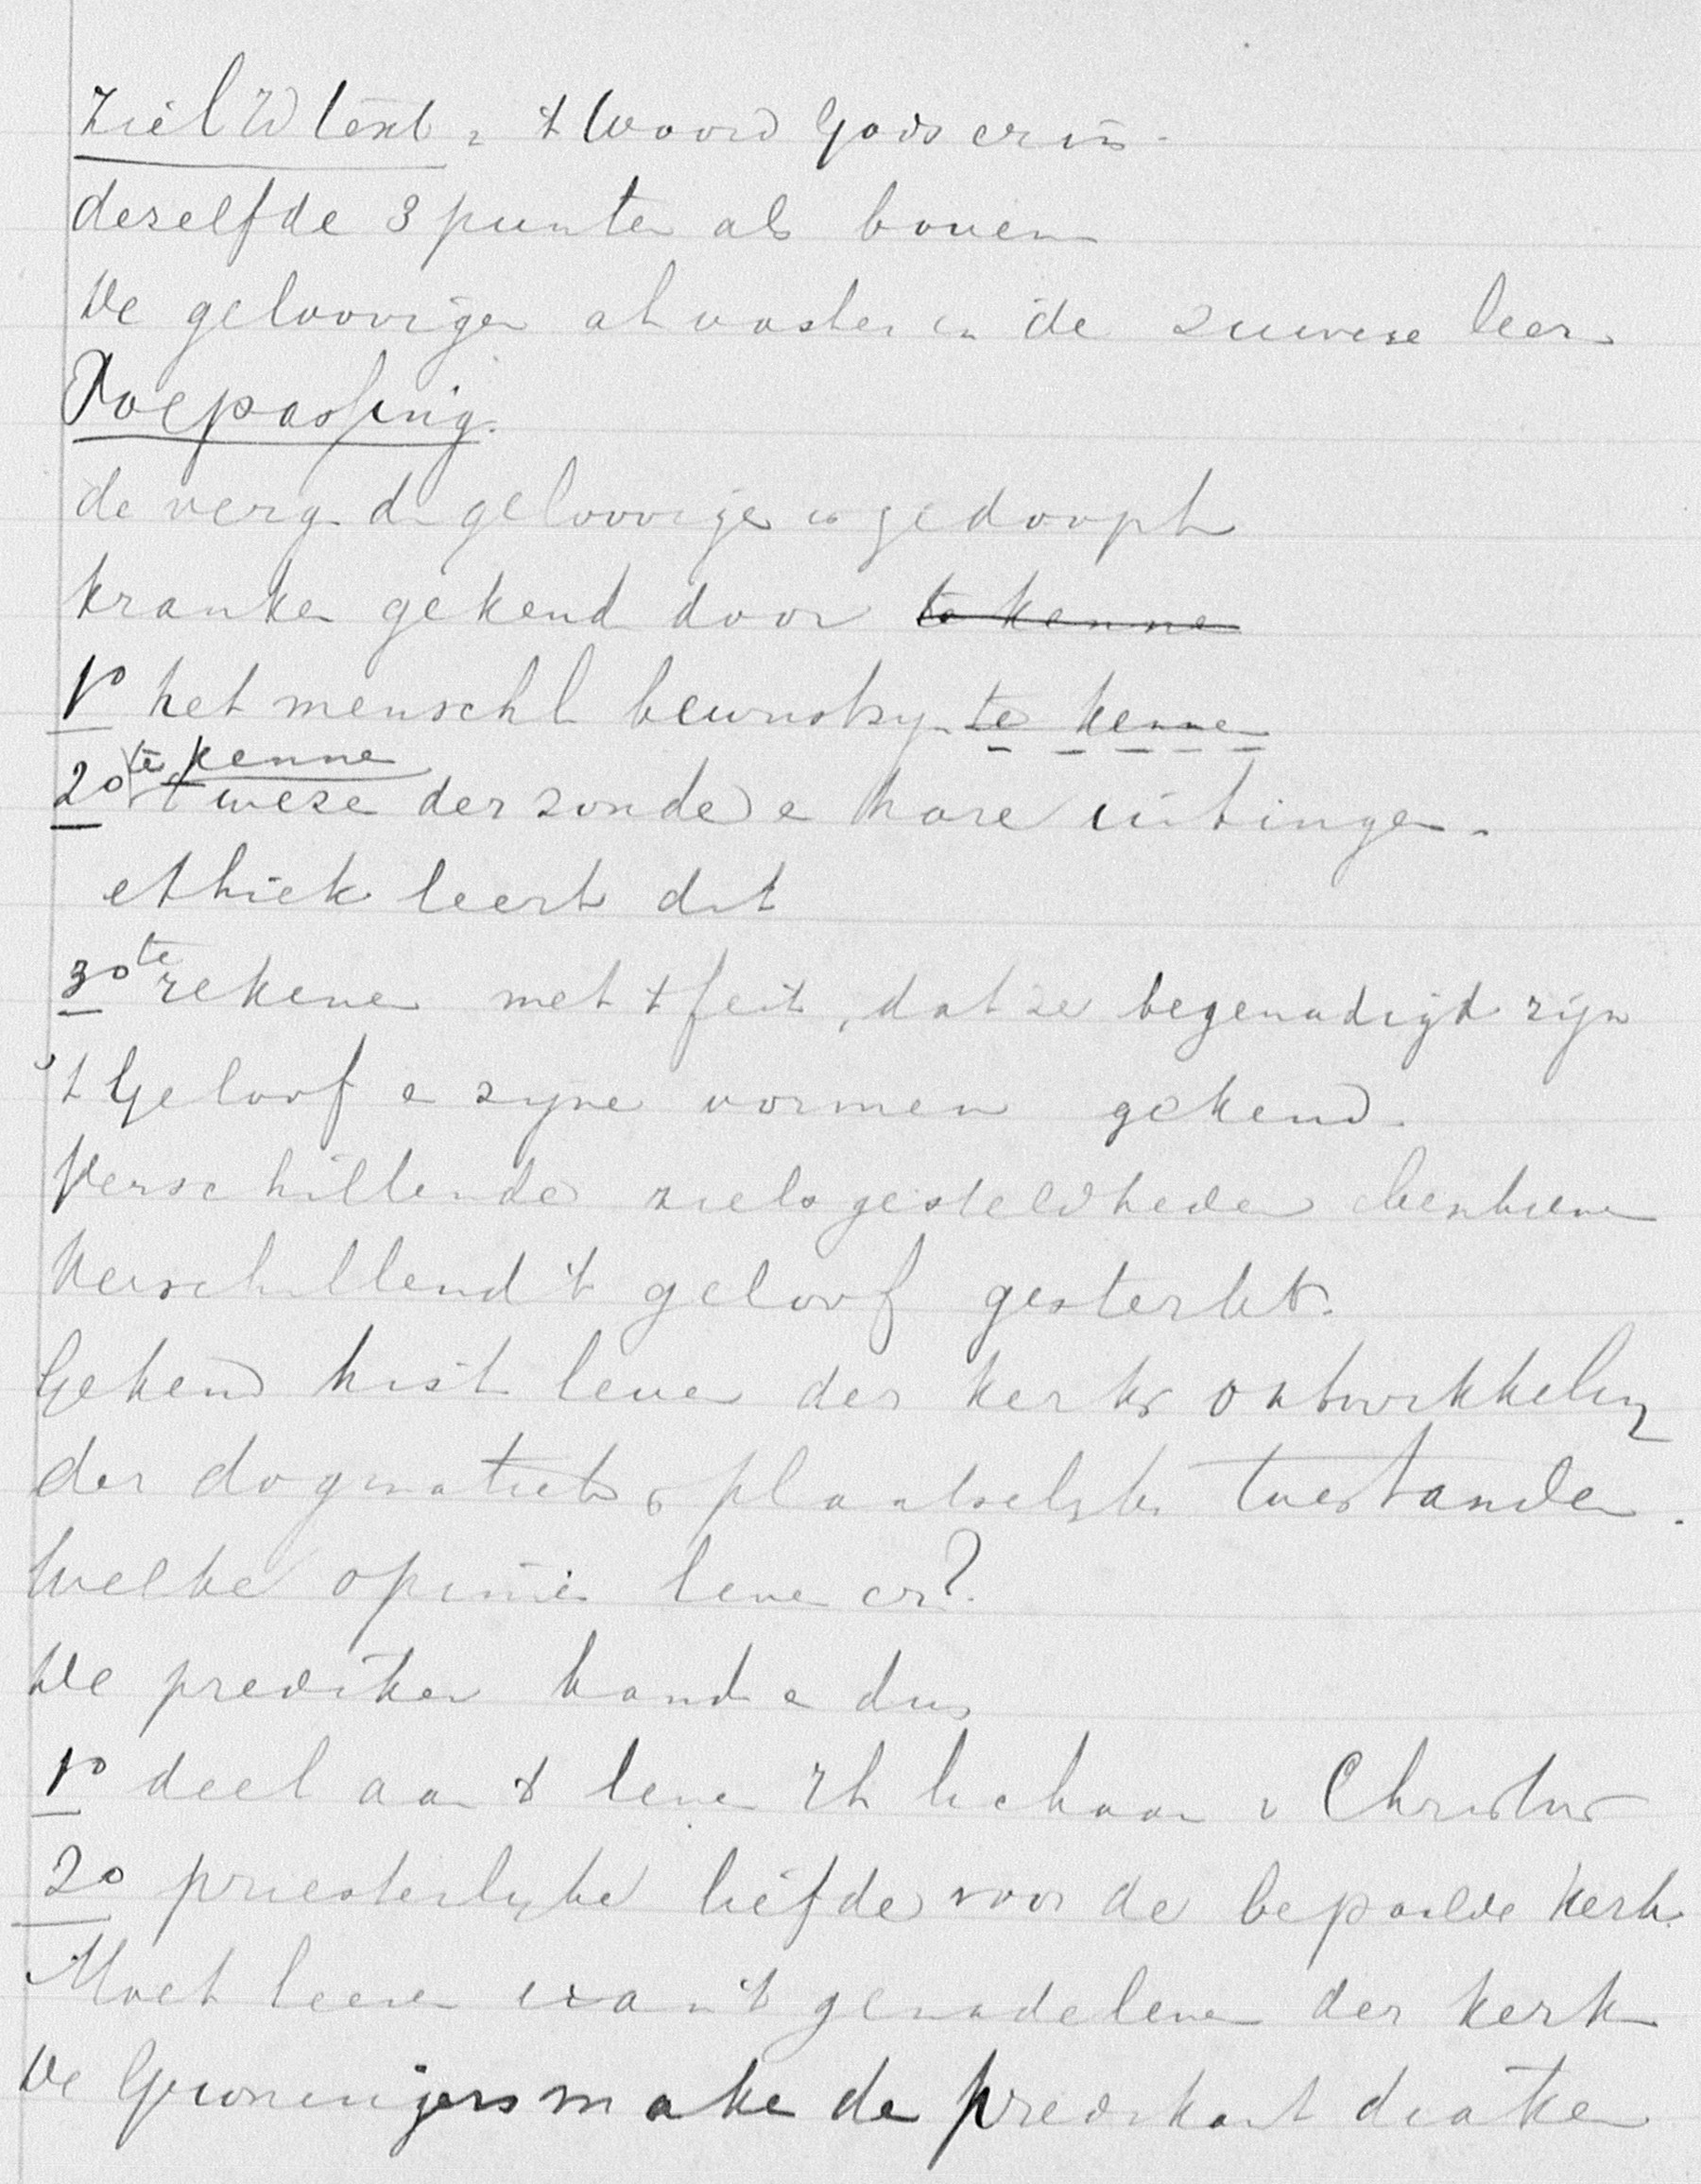 Ziel v d text, 't Woord Gods er in.
deselfde 3 punten als boven
De geloovigen al vaster in de zuivere leer.
Toepassing.
de verg. d. geloovige is gedoopt
kranken gekend door ~~te kenne~~
1o het menschl bewustzyn te kennen
2o te kenne 't weze der zonde e hare uitingen.
ethiek leert dit
3o te rekenen met 't feit, dat ze begenadigd zijn
't Geloof e zyne vormen gekend.
Verschillende zielsgesteldheden
Verschillend 't geloof gesterkt.
Gekend hist leven der kerk, ontwikkeling
der dogmatiek, plaatselyke toestanden.
Welke opinies leven er?
De prediker dus
1o deel aan 't leven v h lichaam v Christus
2o priesterlyke liefde voor de bepaalde kerk.
Moet leven uit 't genadeleven der kerk
De Groningers make de predikant diaken